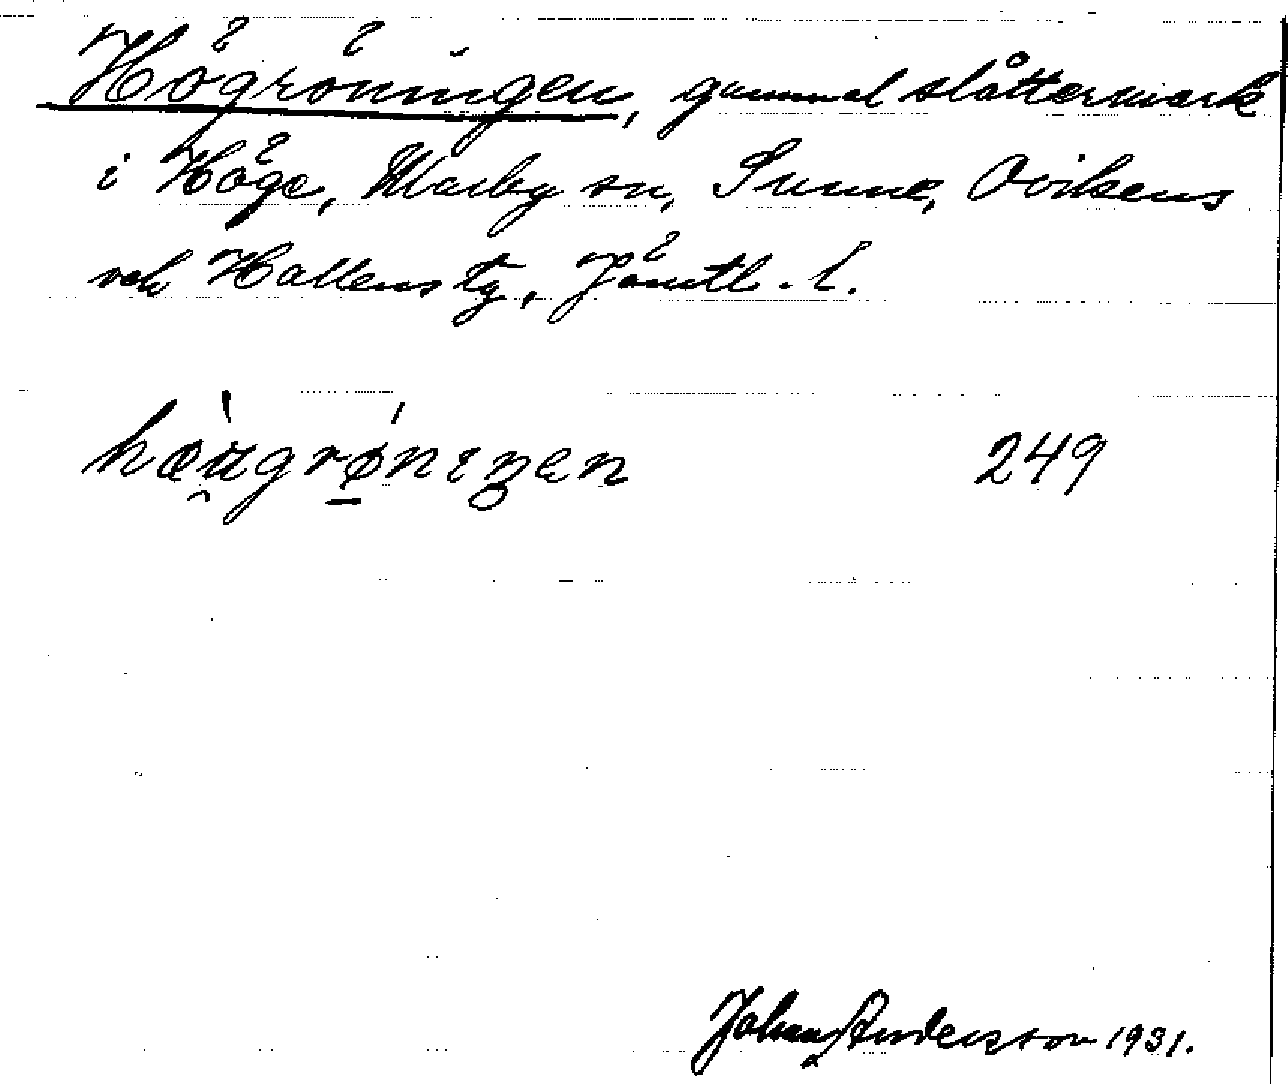 Högröningen, gammal slåttermark
i Höge, Marby sn, Sunne, Ovikens
och Hallens tg, Jämtl. l.
249
Johan Andersson 1931.